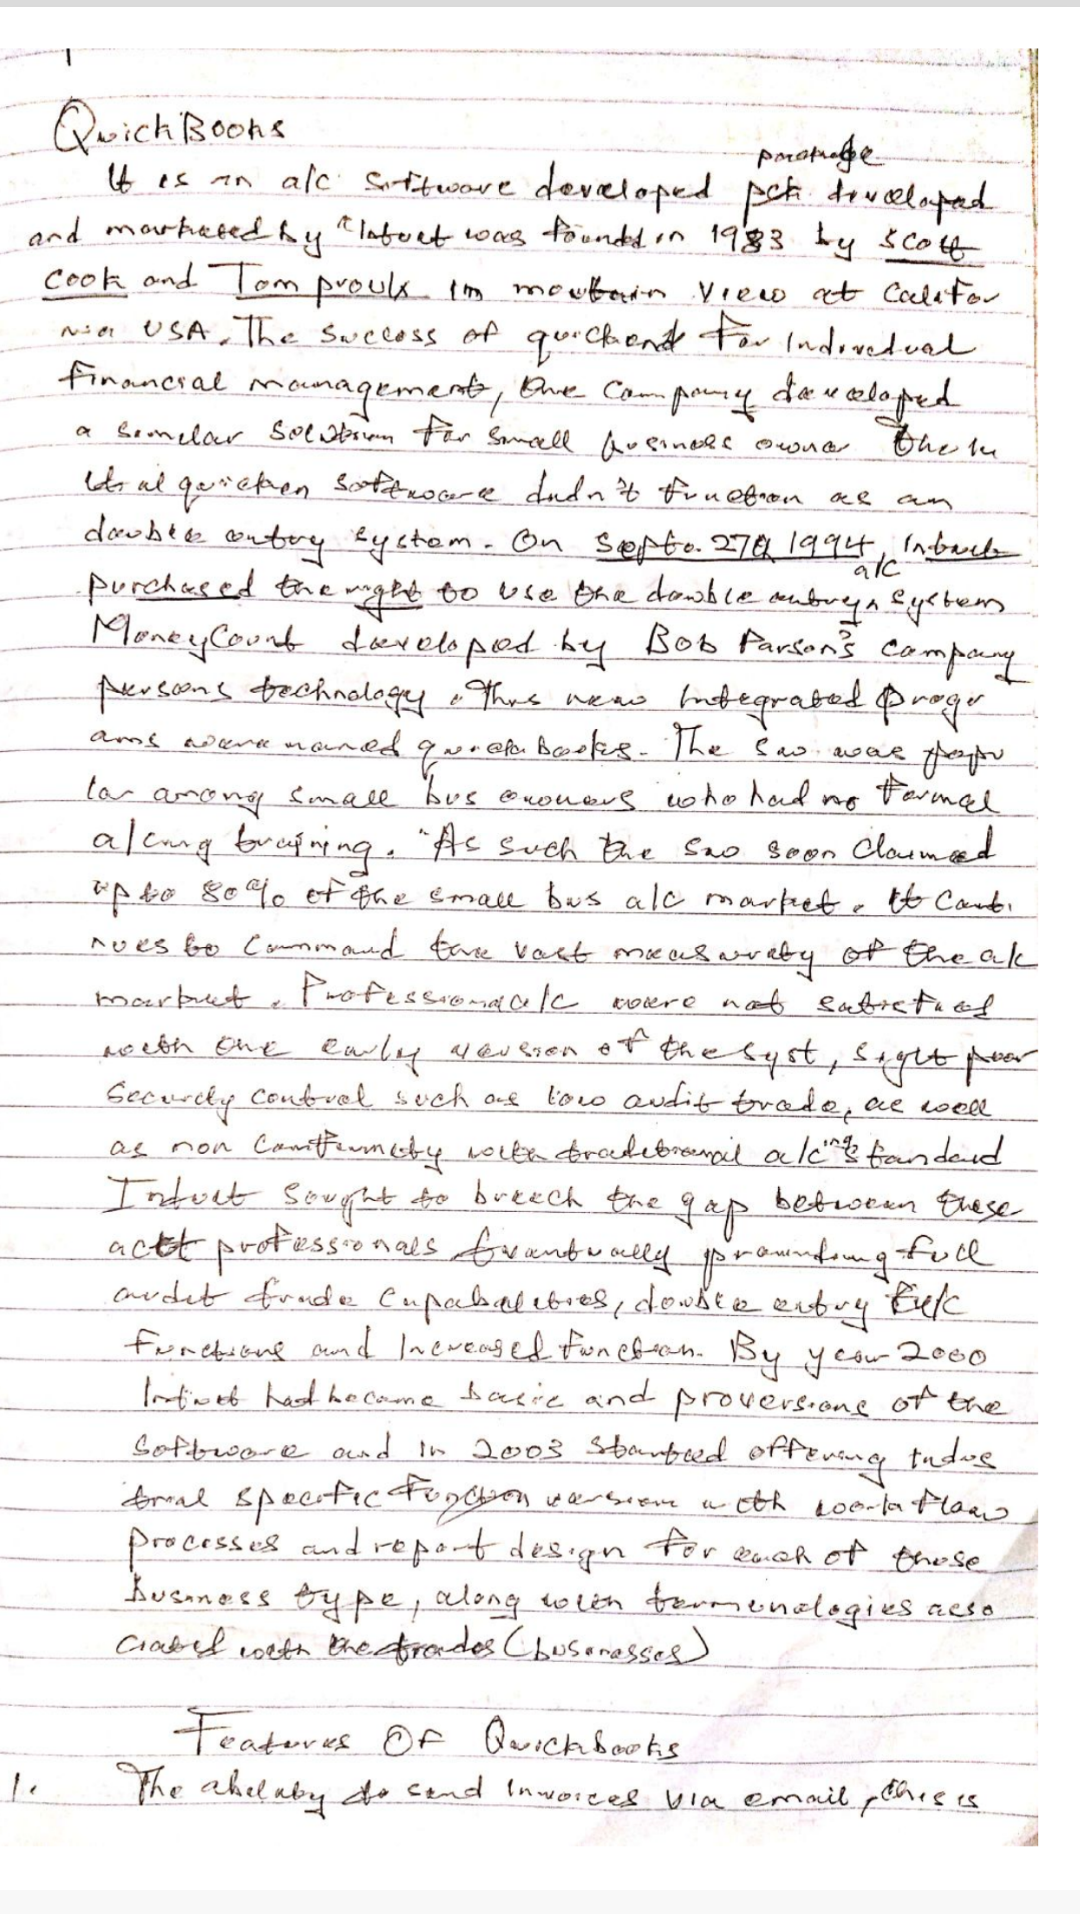 QuickBooks
package
It is an a/c software developed pck developed
and marketed by "Intuit was founded in 1983 by Scott
Cook and Tom proulx in mountain View at Califor
nia USA. The success of quicken for Individual
financial management, the company developed
a similar solution for small business owner the in
itial quicken software didn't function as an
double entry system. On Septo. 27th 1994, Intuit
a/c
purchased the right to use the double entry system
MoneyCount developed by Bob Parson's company
persons technology. This new Integrated progr
ams were named quickbooks. The s/w was popu
lar among small bus owners who had no formal
a/cing training. "As such the s/w soon claimed
up to 80% of the small bus a/c market. It conti
nues to command the vast of the a/c
market. Professional a/c were not satisfied
with the early version of the syst, poor
Security control such as low audit trade, as well
as non conformity with traditional a/c'ing standard
Intuit sought to breech the gap between these
acct professionals eventually full
audit trade capabalities, double entry
functions and Increased function. By year 2000
Intuit had become basic and proversions of the
Software and in 2003 started offering indus
trial specific version with work flow
processes and report design for each of those
business type, along with termenologies asso
ciated with the trades (businesses)
Features Of Quickbooks
1. The abelaby to send Invoices via email, this is